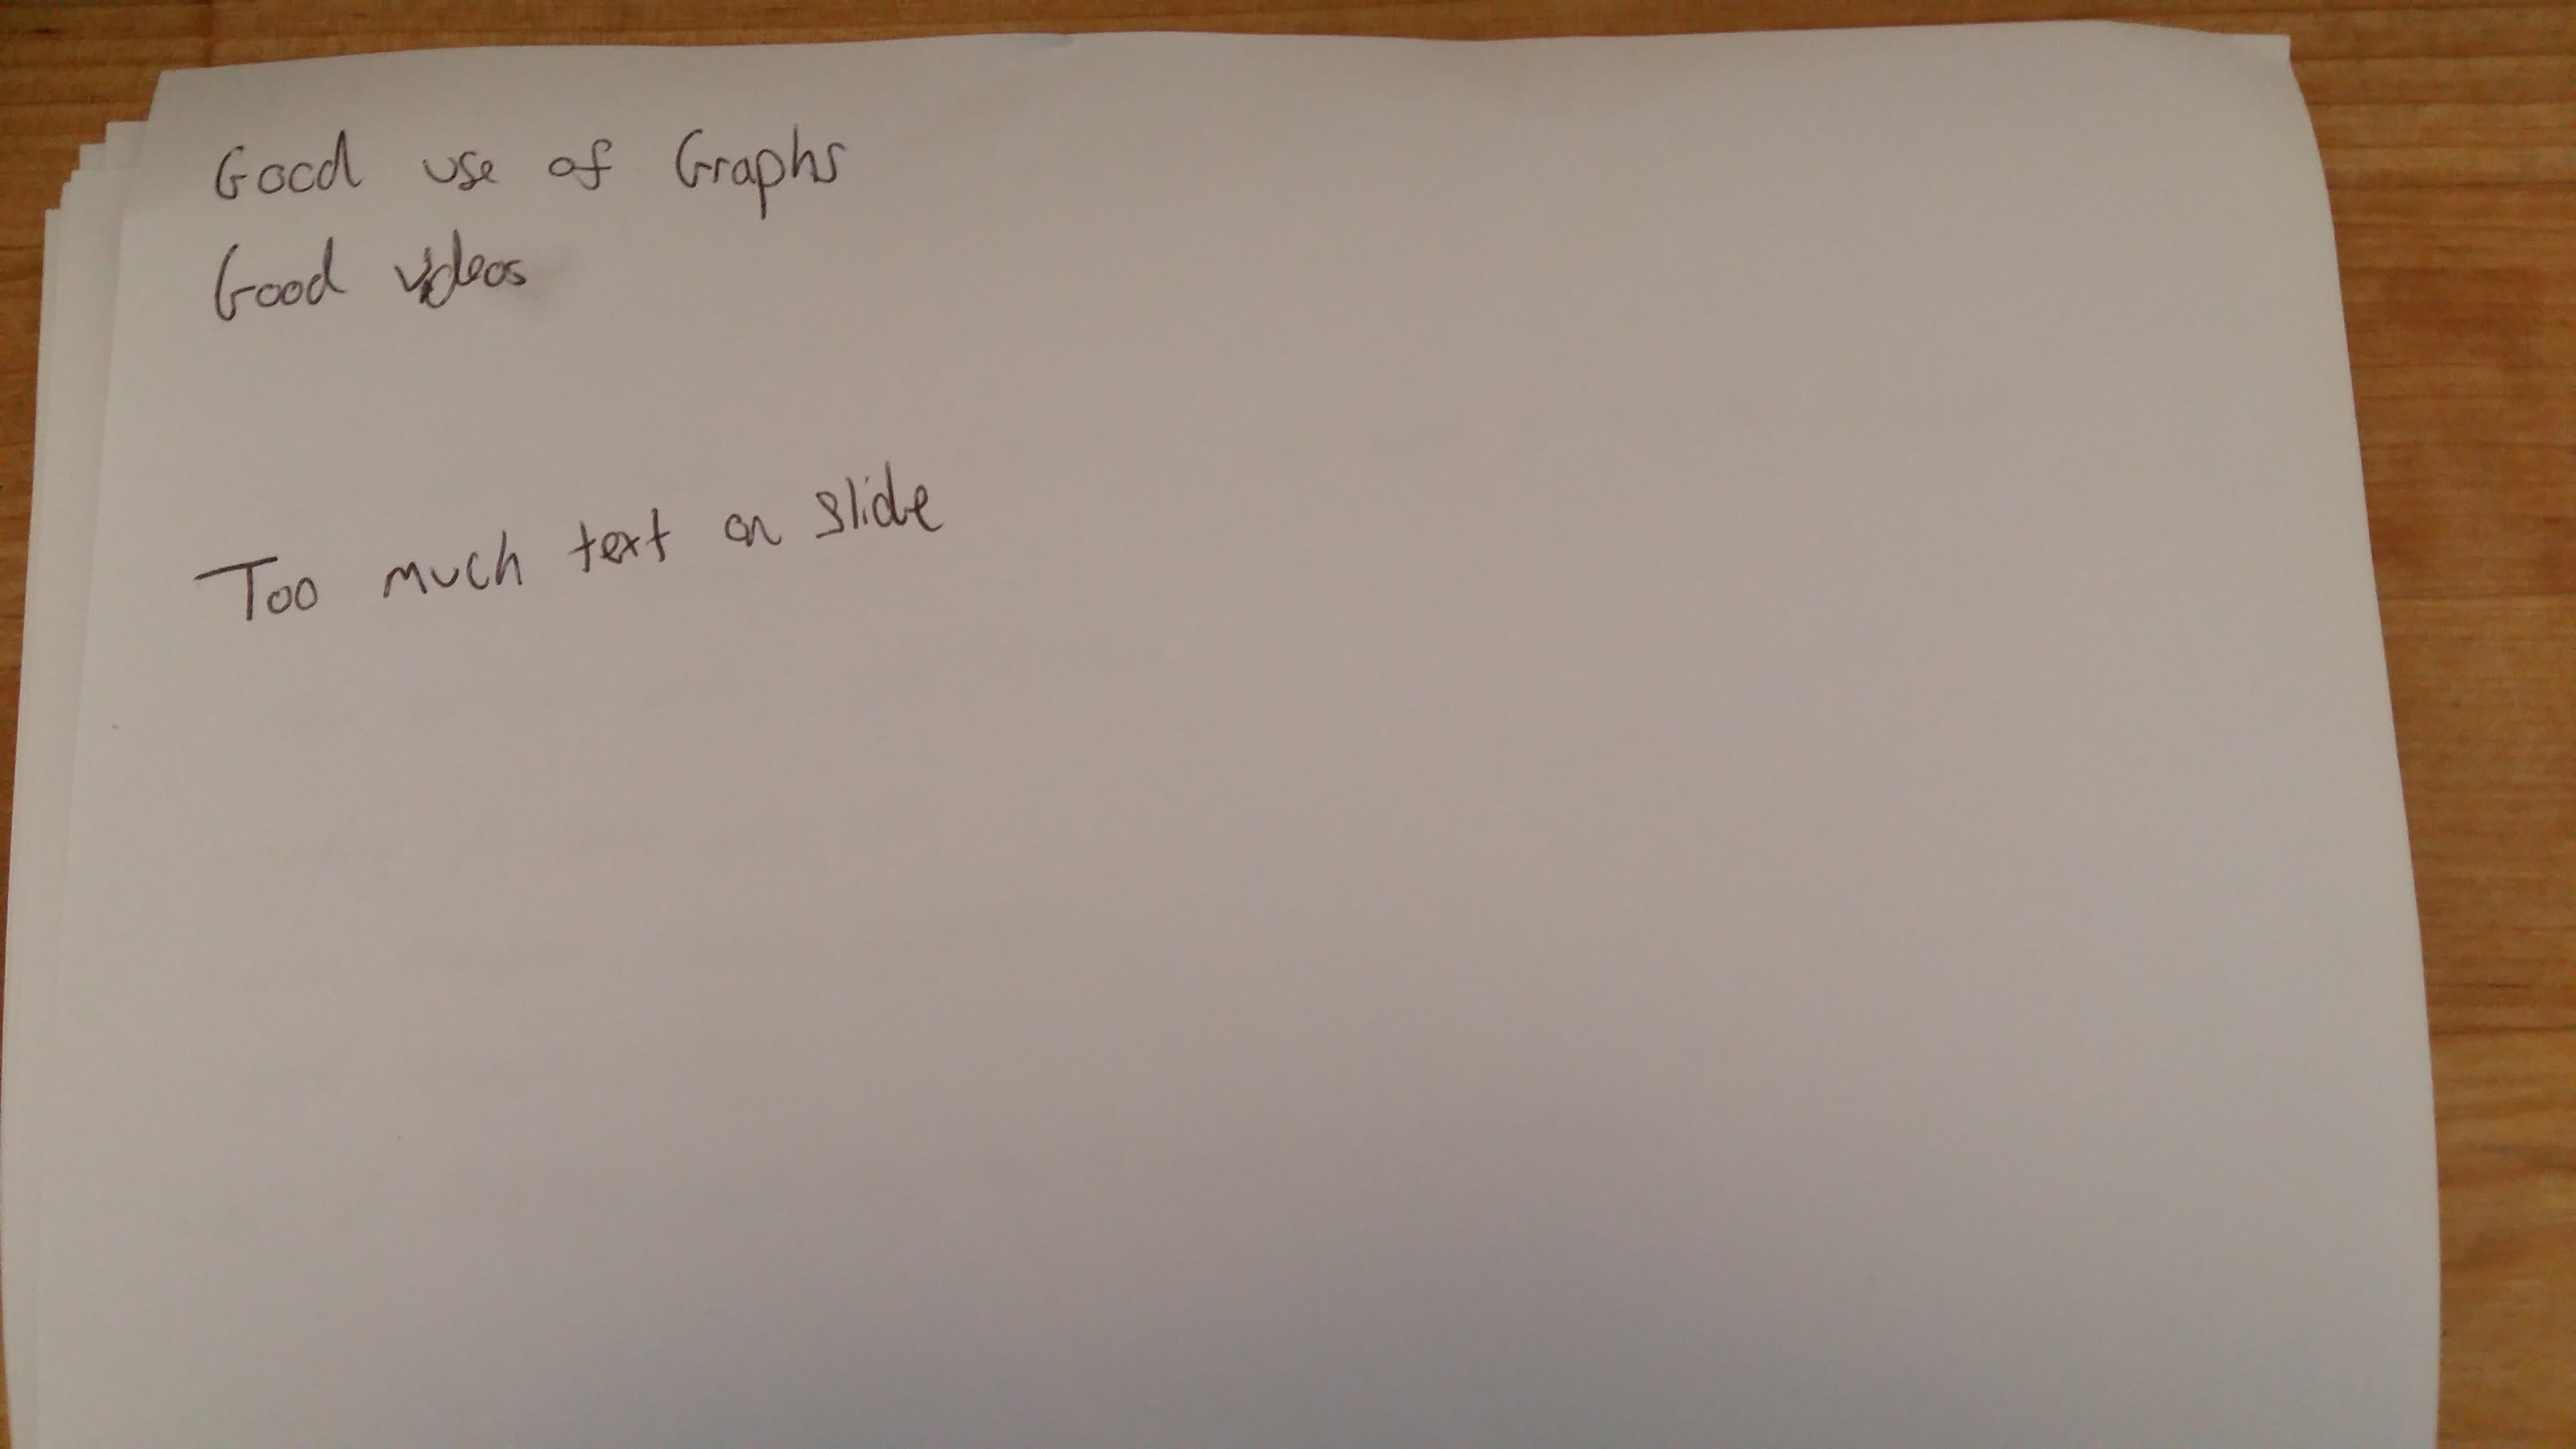 Good use of Graphs
Good videos
Too much text on slide